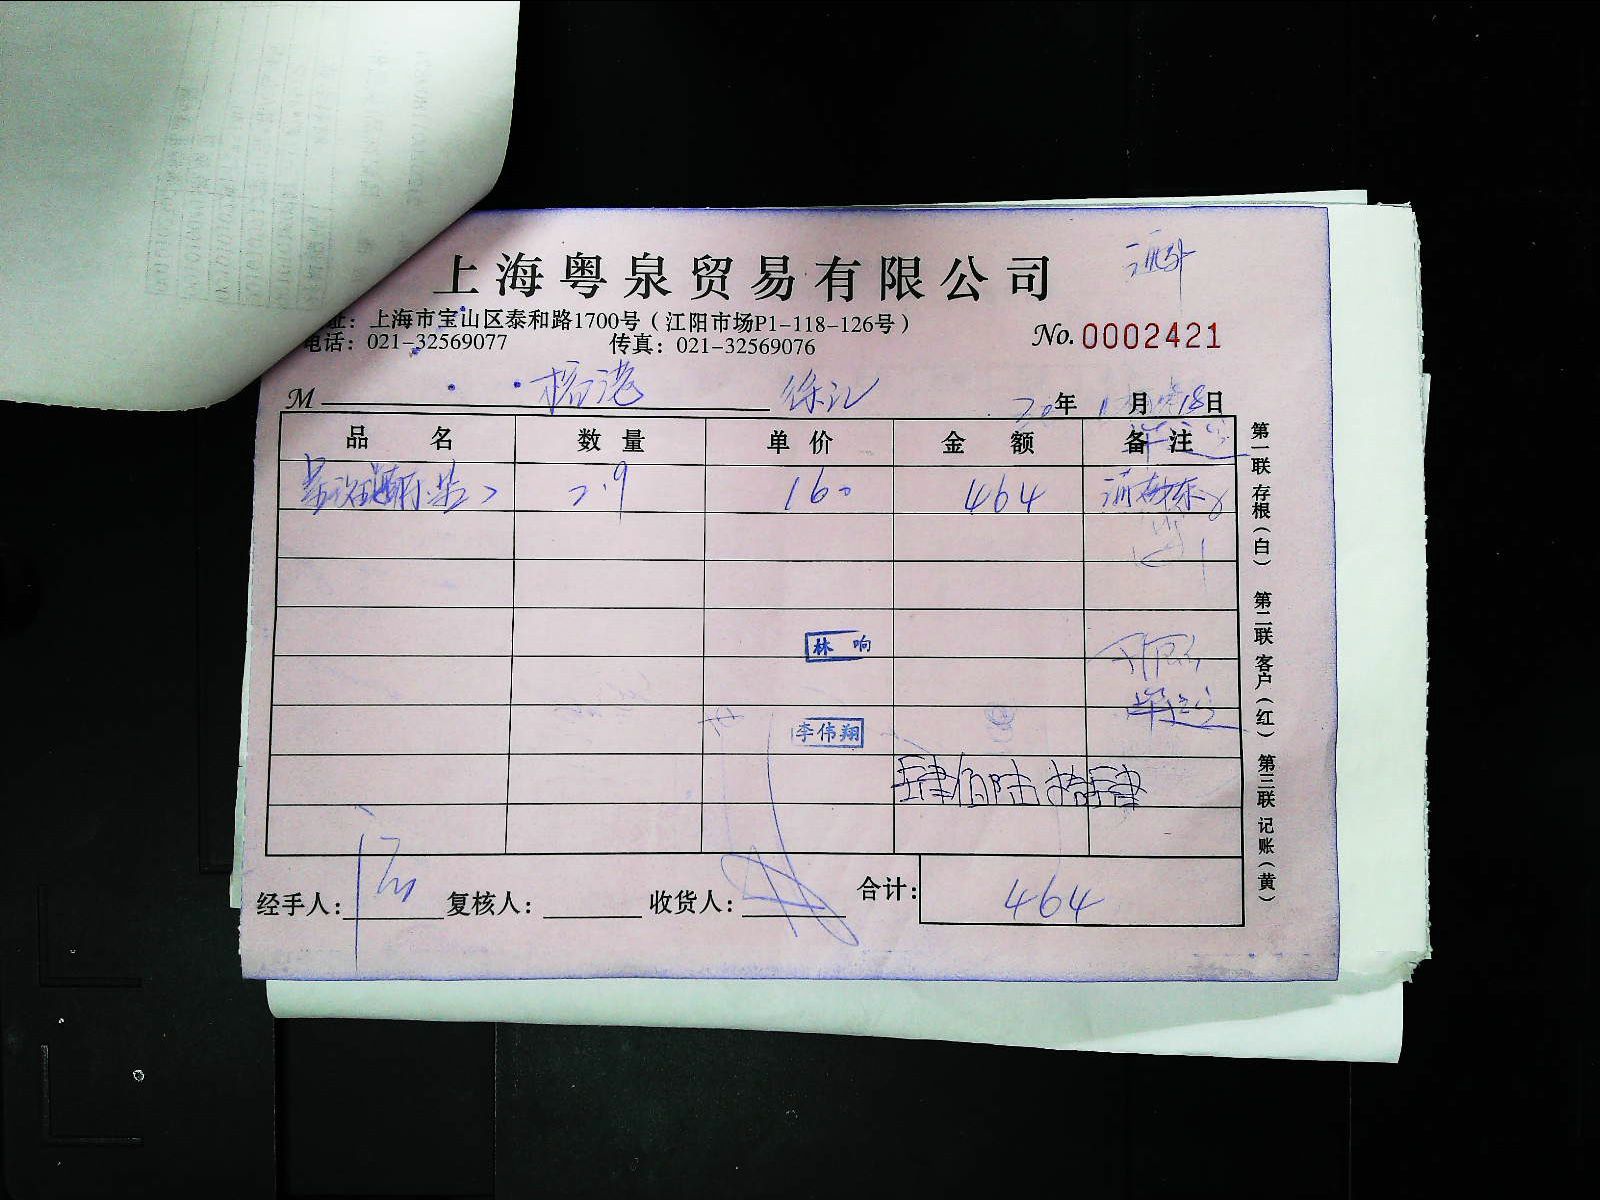 上海粤泉贸易有限公司
址：上海市宝山区泰和路1700号（江阳市场P1-118-126号）
电话：021-32569077 传真：021-32569076
No. 0002421
M 徐汇 20年 11月 18日
品名 数量 单价 金额 备注
2.9 160 464
林响
李伟翔
肆佰陆拾肆
经手人： 复核人： 收货人： 合计： 464
第一联 存根（白） 第二联 客户（红） 第三联 记账（黄）